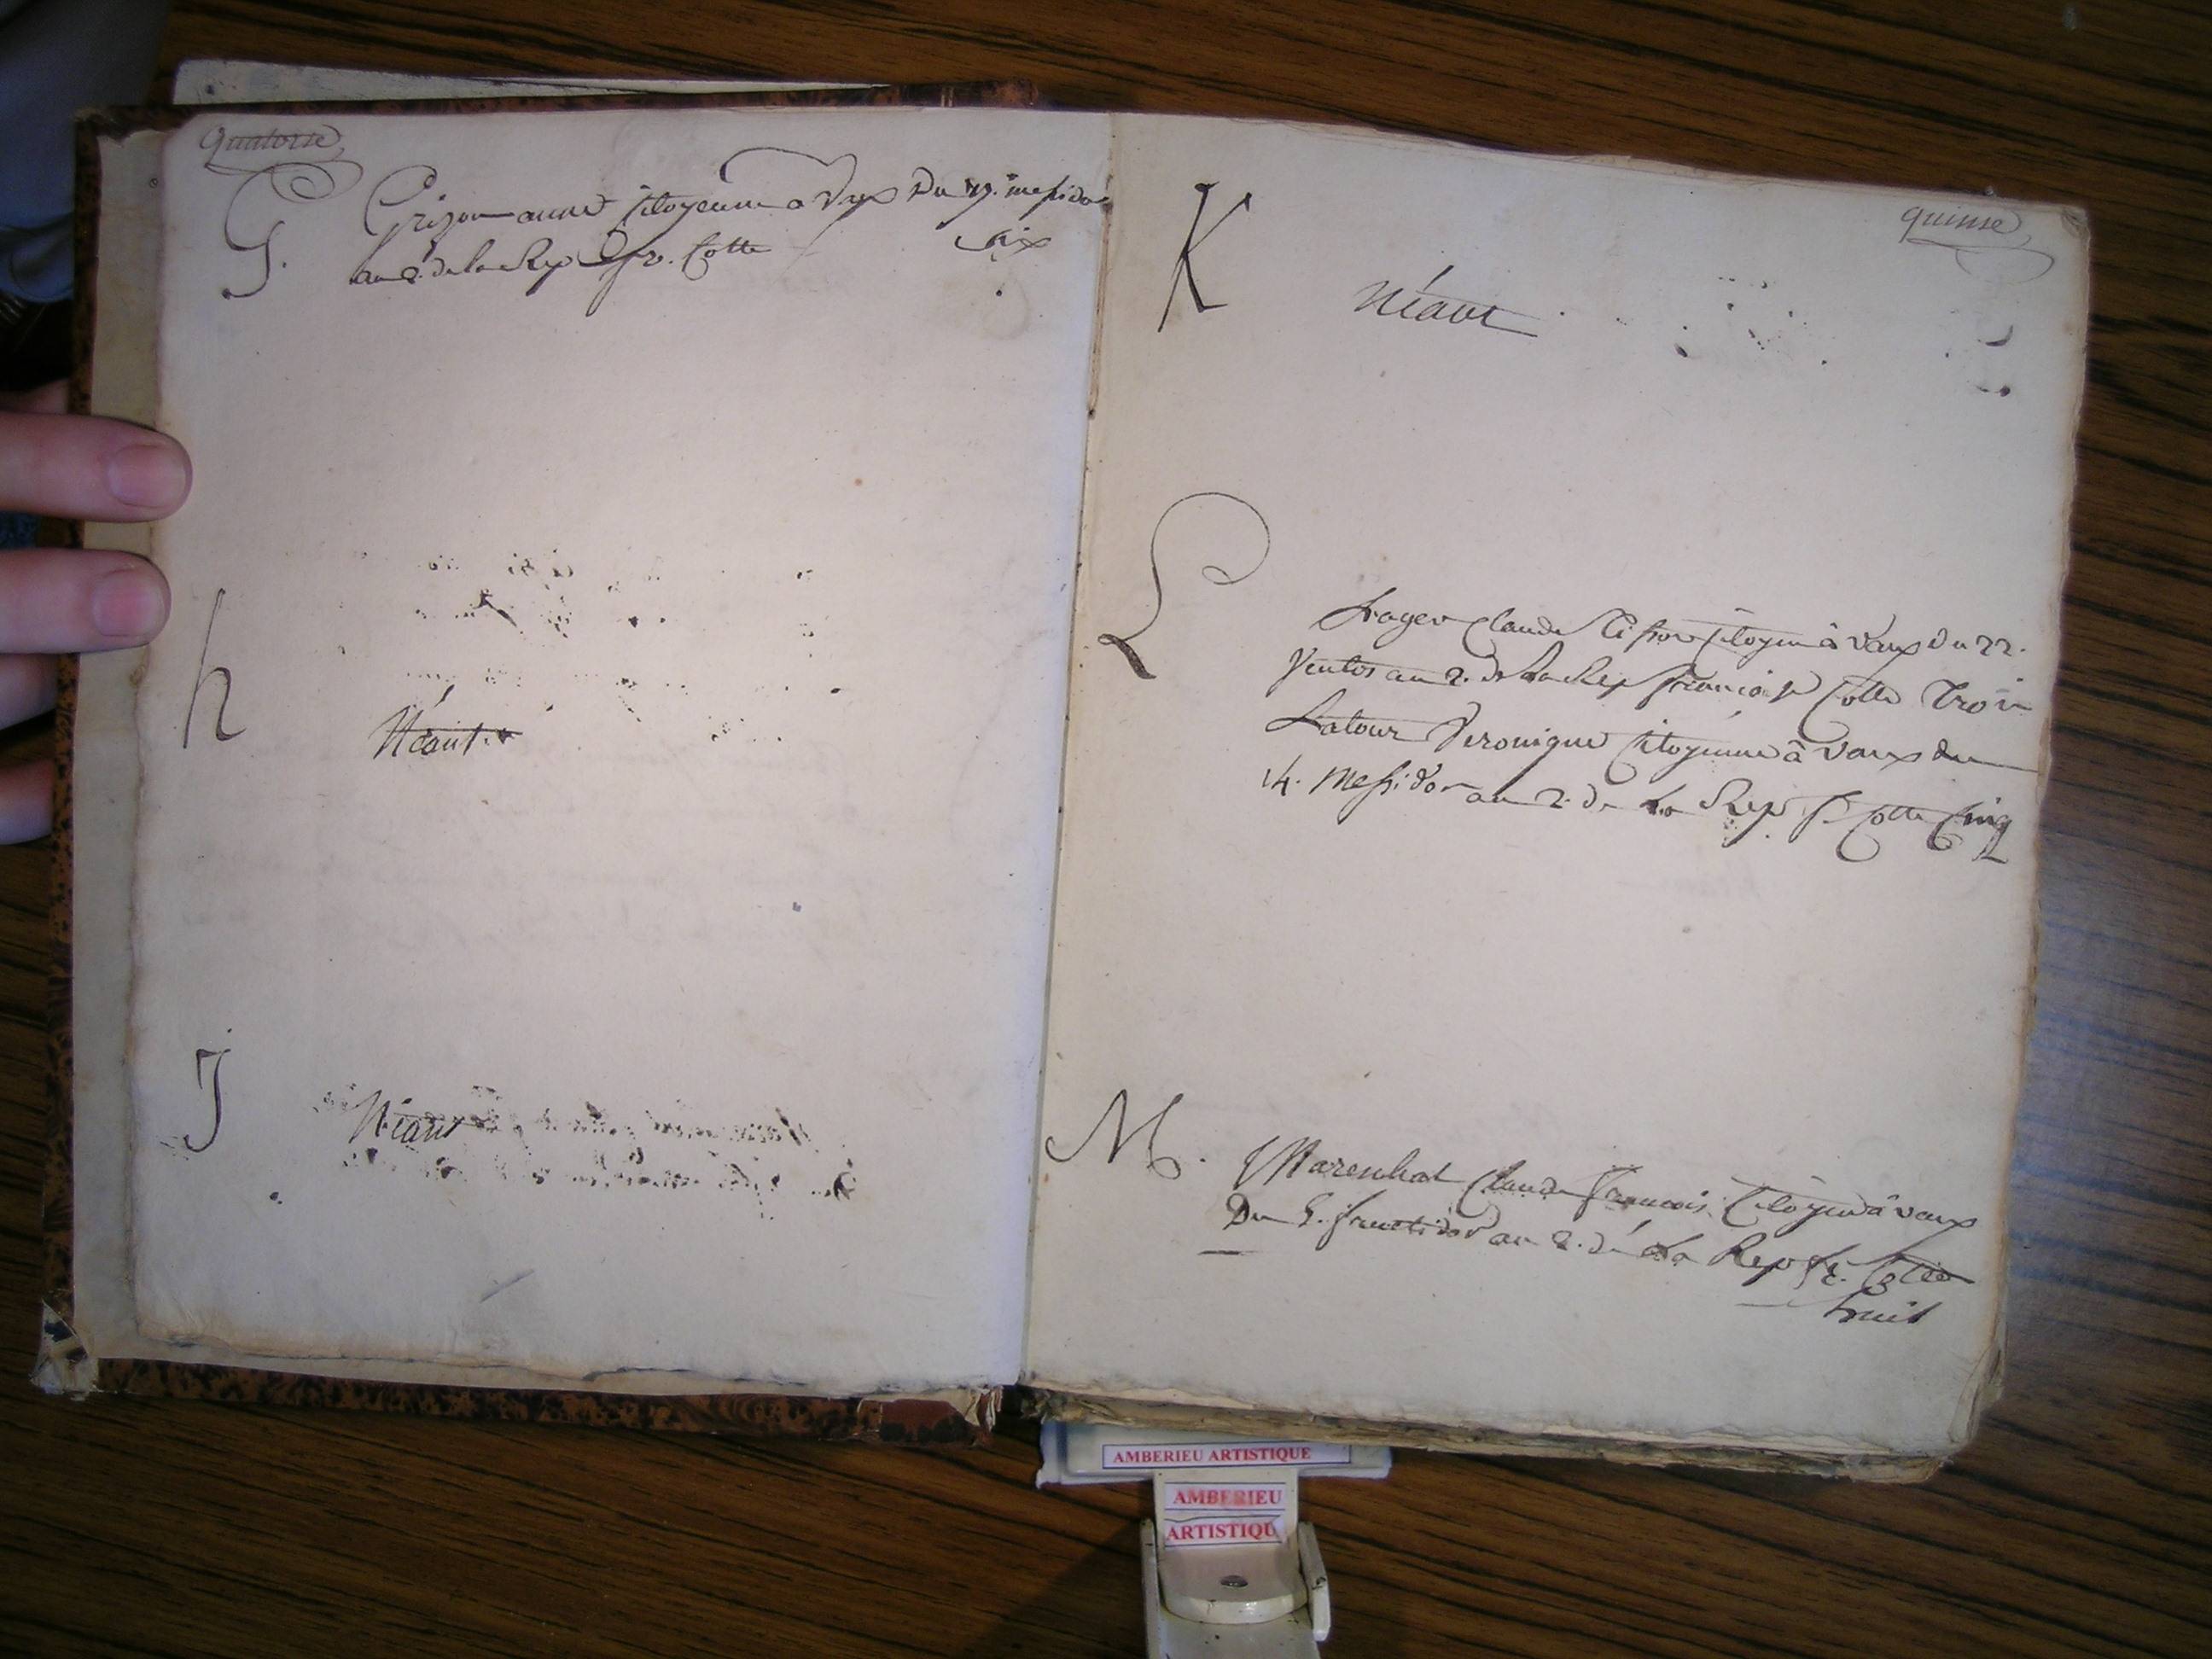 quatorze
G. Grizon anne Citoyenne a Vaux Du 19. messidor
an 2. de la Rep fr. Cotte six
h
Néant
J
Néant
quinse
K
Néant
L
Lager Claude Citoyen à Vaux Du 22.
Ventos an 2. de La Rep francoise Cotte Trois
Latour Veronique Citoyenne à Vaux du
14. Messidor an 2. de La Rep f. Cotte Cinq
M. Marenhat Claude francois Citoyen à vaux
Du 5. fructidor an 2. dé La Rep fr. Cotte
huit
AMBERIEU ARTISTIQUE
AMBERIEU
ARTISTIQU